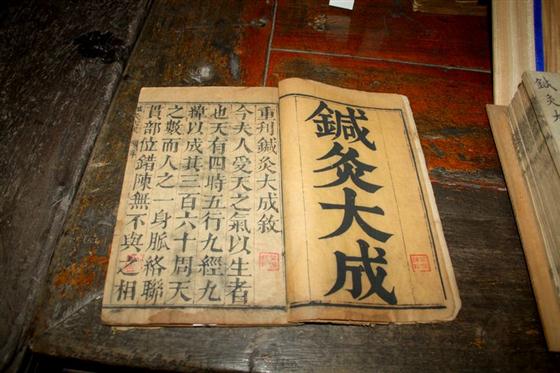 鍼灸大成
重刊鍼灸大成敘
今夫人受天之氣以生者
也天有四時五行九經九
緯以成其三百六十周天
之數而人之一身脈絡聯
貫部位錯陳無不與之相
鍼灸大